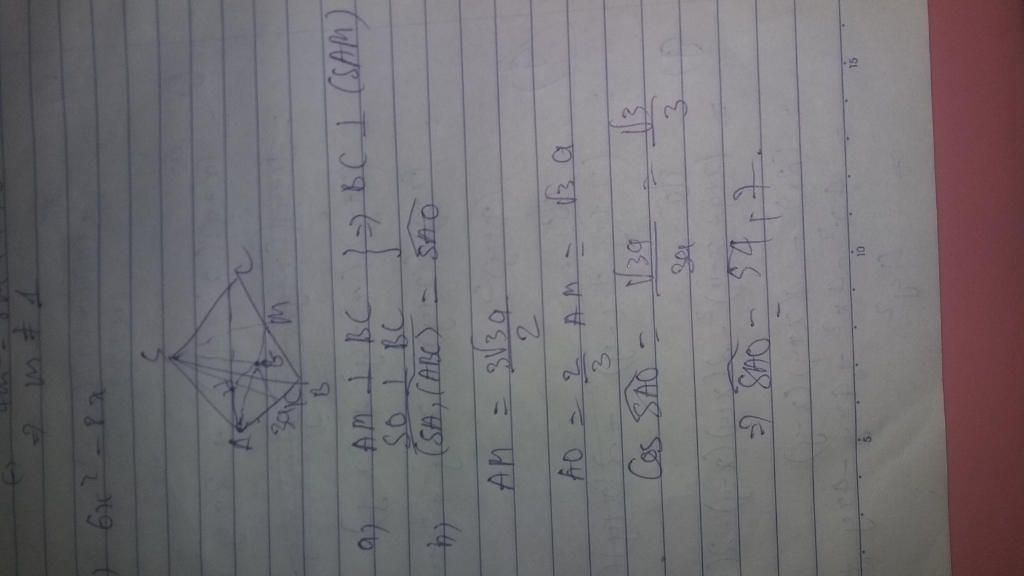 ⇒ m ≠ 1
6x² - 8x
S
A
C
M
B
3a
a) AM ⊥ BC
SO ⊥ BC } ⇒ BC ⊥ (SAM)
b) (SA, (ABC)) = SAO
AM = 3√3a / 2
AO = 2/3 AM = √3 a
Cos SAO = √3a / 3a = √3 / 3
⇒ SAO = 54,7.
5
10
15